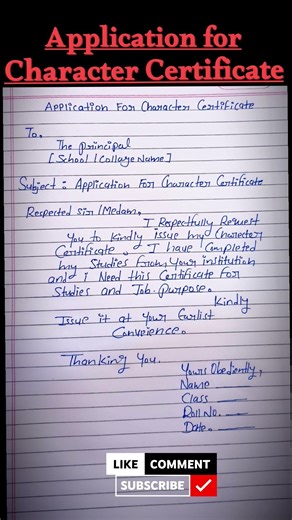 Application for
Character Certificate
Application For Character Certificate
To,
The principal
[School/Collage Name]
Subject: Application For Character Certificate
Respected Sir/Medam,
I Respectfully Request
You to kindly issue my Character
Certificate. I have completed
my Studies From your institution
and I Need this Certificate For
Studies and Job Purpose.
Kindly
Issue it at Your Earlist
Conveience.
Thanking You.
Yours Obediently,
Name
Class
Roll No.
Date.
LIKE COMMENT
SUBSCRIBE